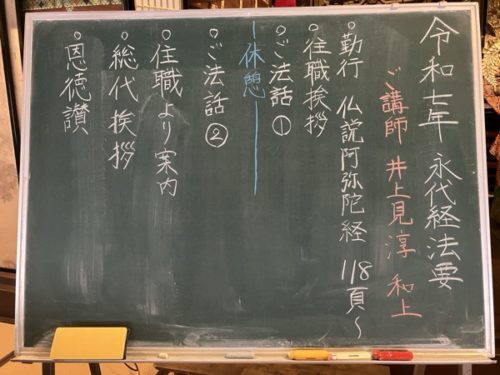 令和七年 永代経法要
ご講師 井上見淳 和上
○勤行 仏説阿弥陀経 118頁〜
○住職挨拶
○ご法話①
―休憩―
○ご法話②
○住職より案内
○総代挨拶
○恩徳讃